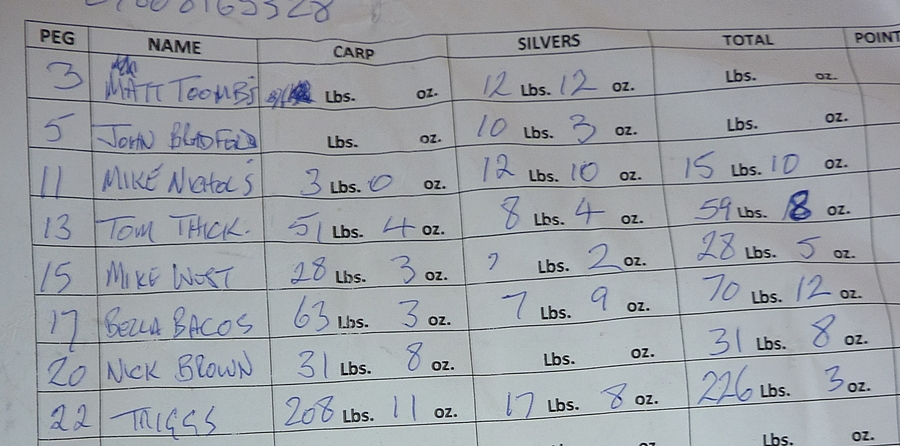 PEG NAME CARP SILVERS TOTAL POINT
3 MATT TOOMBS Lbs. oz. 12 Lbs. 12 oz. Lbs. oz.
5 JOHN BRADFORD Lbs. oz. 10 Lbs. 3 oz. Lbs. oz.
11 MIKE NICHOLS 3 Lbs. 0 oz. 12 Lbs. 10 oz. 15 Lbs. 10 oz.
13 TOM THICK. 51 Lbs. 4 oz. 8 Lbs. 4 oz. 59 Lbs. 8 oz.
15 MIKE WEST 28 Lbs. 3 oz. Lbs. 2 oz. 28 Lbs. 5 oz.
17 BELLA BACOS 63 Lbs. 3 oz. 7 Lbs. 9 oz. 70 Lbs. 12 oz.
20 NICK BROWN 31 Lbs. 8 oz. Lbs. oz. 31 Lbs. 8 oz.
22 TRIGGS 208 Lbs. 11 oz. 17 Lbs. 8 oz. 226 Lbs. 3 oz.
oz. Lbs. oz.